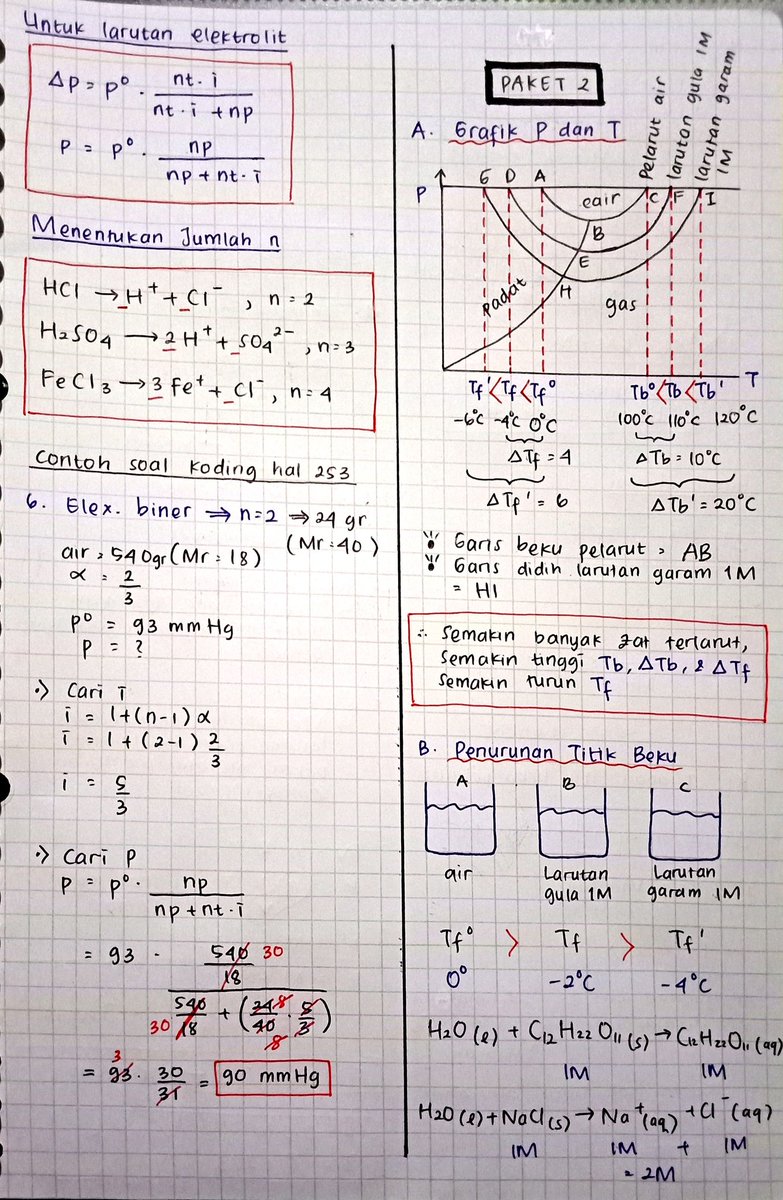 Untuk larutan elektrolit
ΔP = P° . nt . i / nt . i + np
P = P° . np / np + nt . i
Menentukan Jumlah n
HCl → H⁺ + Cl⁻ , n = 2
H₂SO₄ → 2 H⁺ + SO₄²⁻ , n = 3
FeCl₃ → 3 Fe⁺ + Cl⁻, n = 4
Contoh soal koding hal 253
6. Elex. biner ⇒ n = 2 ⇒ 24 gr
(Mr = 40)
air = 540 gr (Mr = 18)
α = 2/3
P° = 93 mmHg
P = ?
∴) Cari i
i = 1 + (n-1) α
i = 1 + (2-1) 2/3
i = 5/3
∴) Cari P
P = P° . np / np + nt . i
= 93 . 540/18 30 / 30 540/18 + (24/40 8 . 5/3) 8
= 93 3 . 30/31 = 90 mmHg
PAKET 2
A. Grafik P dan T
Pelarut air
larutan gula 1M
larutan garam 1M
P G D A C F I
cair
B
E
H
padat
gas
T
Tf' < Tf < Tf° Tb° < Tb < Tb'
-6°C -4°C 0°C 100°C 110°C 120°C
ΔTf = 4 ΔTb = 10°C
ΔTf' = 6 ΔTb' = 20°C
Garis beku pelarut = AB
Garis didih larutan garam 1M
= HI
∴ Semakin banyak zat terlarut,
semakin tinggi Tb, ΔTb, & ΔTf
semakin turun Tf
B. Penurunan Titik Beku
A B C
air Larutan gula 1M Larutan garam 1M
Tf° > Tf > Tf'
0° -2°C -4°C
H₂O (l) + C₁₂H₂₂O₁₁ (s) → C₁₂H₂₂O₁₁ (aq)
1M 1M
H₂O (l) + NaCl (s) → Na⁺ (aq) + Cl⁻ (aq)
1M 1M + 1M
= 2M